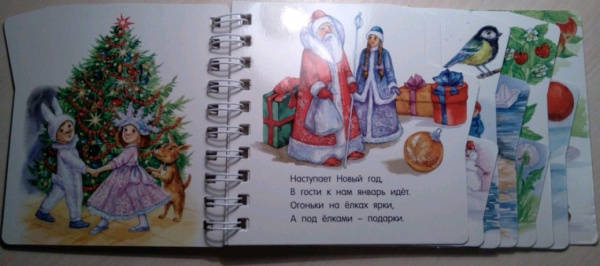 Наступает Новый год,
В гости к нам январь идёт.
Огоньки на ёлках ярки,
А под ёлками – подарки.